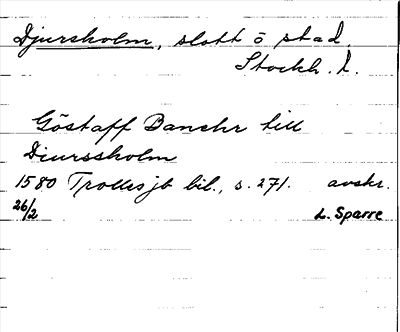 Djursholm, slott o stad.
Stockh. l.
Göstaff Banehr till
Diurssholm
1580 Trolles jb bil., s. 271. avskr.
26/2 L. Sparre